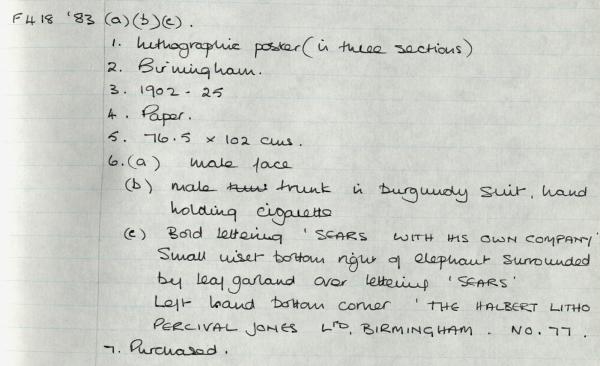 F418 '83 (a)(b)(c).
1. Lithographic poster (in three sections)
2. Birmingham.
3. 1902 - 25
4. Paper.
5. 76.5 x 102 cms.
6. (a) male face
(b) male trunk in burgundy suit, hand
holding cigarette
(c) Bold lettering 'SEARS WITH HIS OWN COMPANY'
Small inset bottom right of elephant surrounded
by leaf garland over lettering 'SEARS'
Left hand bottom corner 'THE HALBERT LITHO
PERCIVAL JONES LTD, BIRMINGHAM. NO. 77.
7. Purchased.